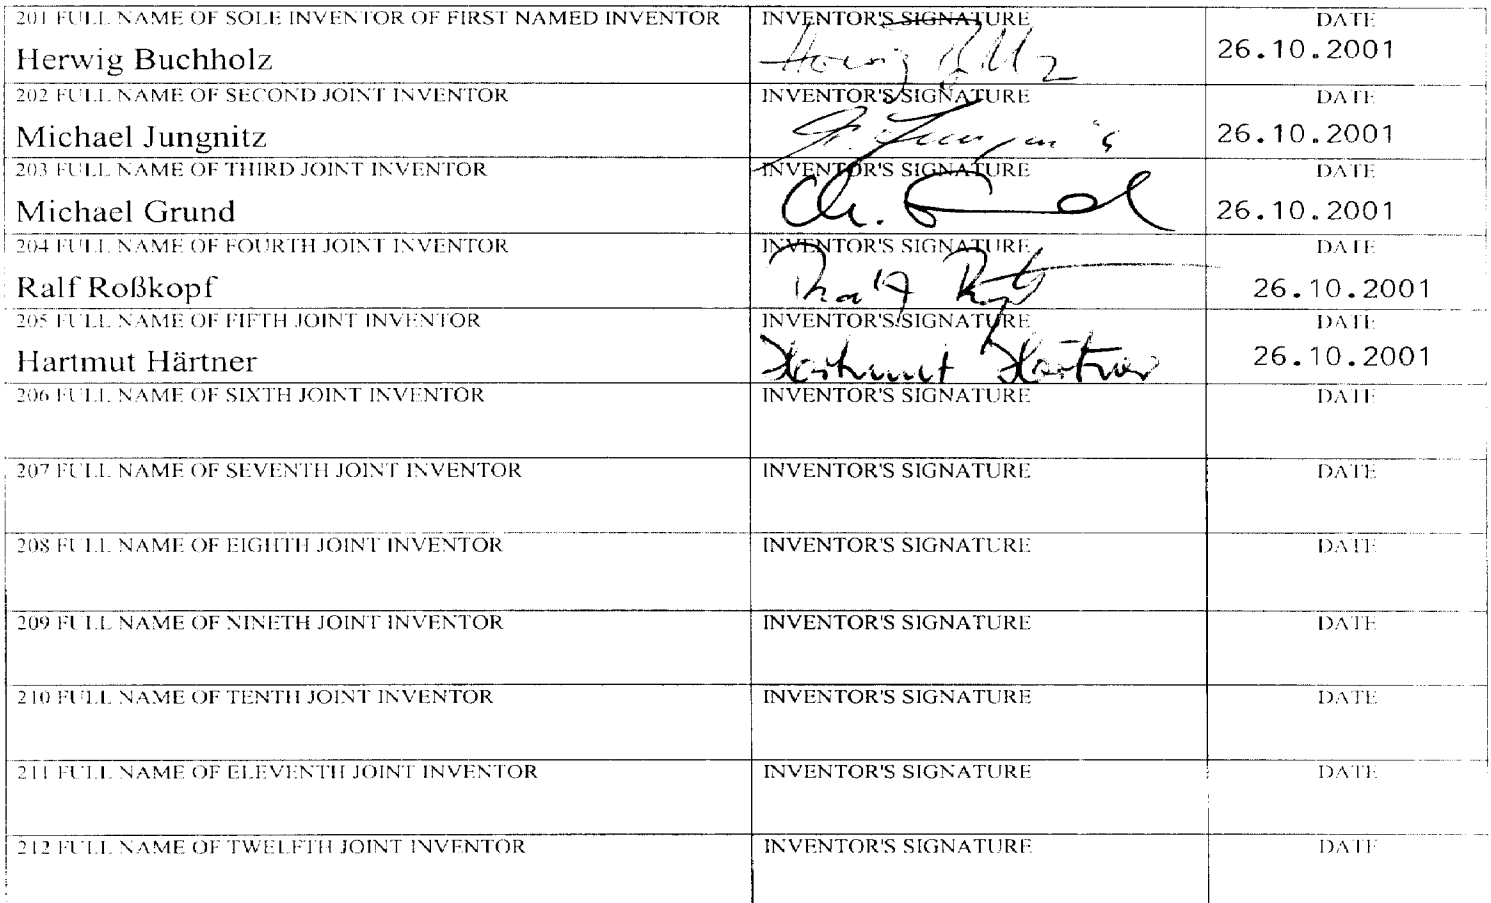 201 FULL NAME OF SOLE INVENTOR OF FIRST NAMED INVENTOR INVENTOR'S SIGNATURE DATE
Herwig Buchholz 26.10.2001
202 FULL NAME OF SECOND JOINT INVENTOR INVENTOR'S SIGNATURE DATE
Michael Jungnitz 26.10.2001
203 FULL NAME OF THIRD JOINT INVENTOR INVENTOR'S SIGNATURE DATE
Michael Grund 26.10.2001
204 FULL NAME OF FOURTH JOINT INVENTOR INVENTOR'S SIGNATURE DATE
Ralf Roßkopf 26.10.2001
205 FULL NAME OF FIFTH JOINT INVENTOR INVENTOR'S SIGNATURE DATE
Hartmut Härtner Hartmut Härtner 26.10.2001
206 FULL NAME OF SIXTH JOINT INVENTOR INVENTOR'S SIGNATURE DATE
207 FULL NAME OF SEVENTH JOINT INVENTOR INVENTOR'S SIGNATURE DATE
208 FULL NAME OF EIGHTH JOINT INVENTOR INVENTOR'S SIGNATURE DATE
209 FULL NAME OF NINETH JOINT INVENTOR INVENTOR'S SIGNATURE DATE
210 FULL NAME OF TENTH JOINT INVENTOR INVENTOR'S SIGNATURE DATE
211 FULL NAME OF ELEVENTH JOINT INVENTOR INVENTOR'S SIGNATURE DATE
212 FULL NAME OF TWELFTH JOINT INVENTOR INVENTOR'S SIGNATURE DATE